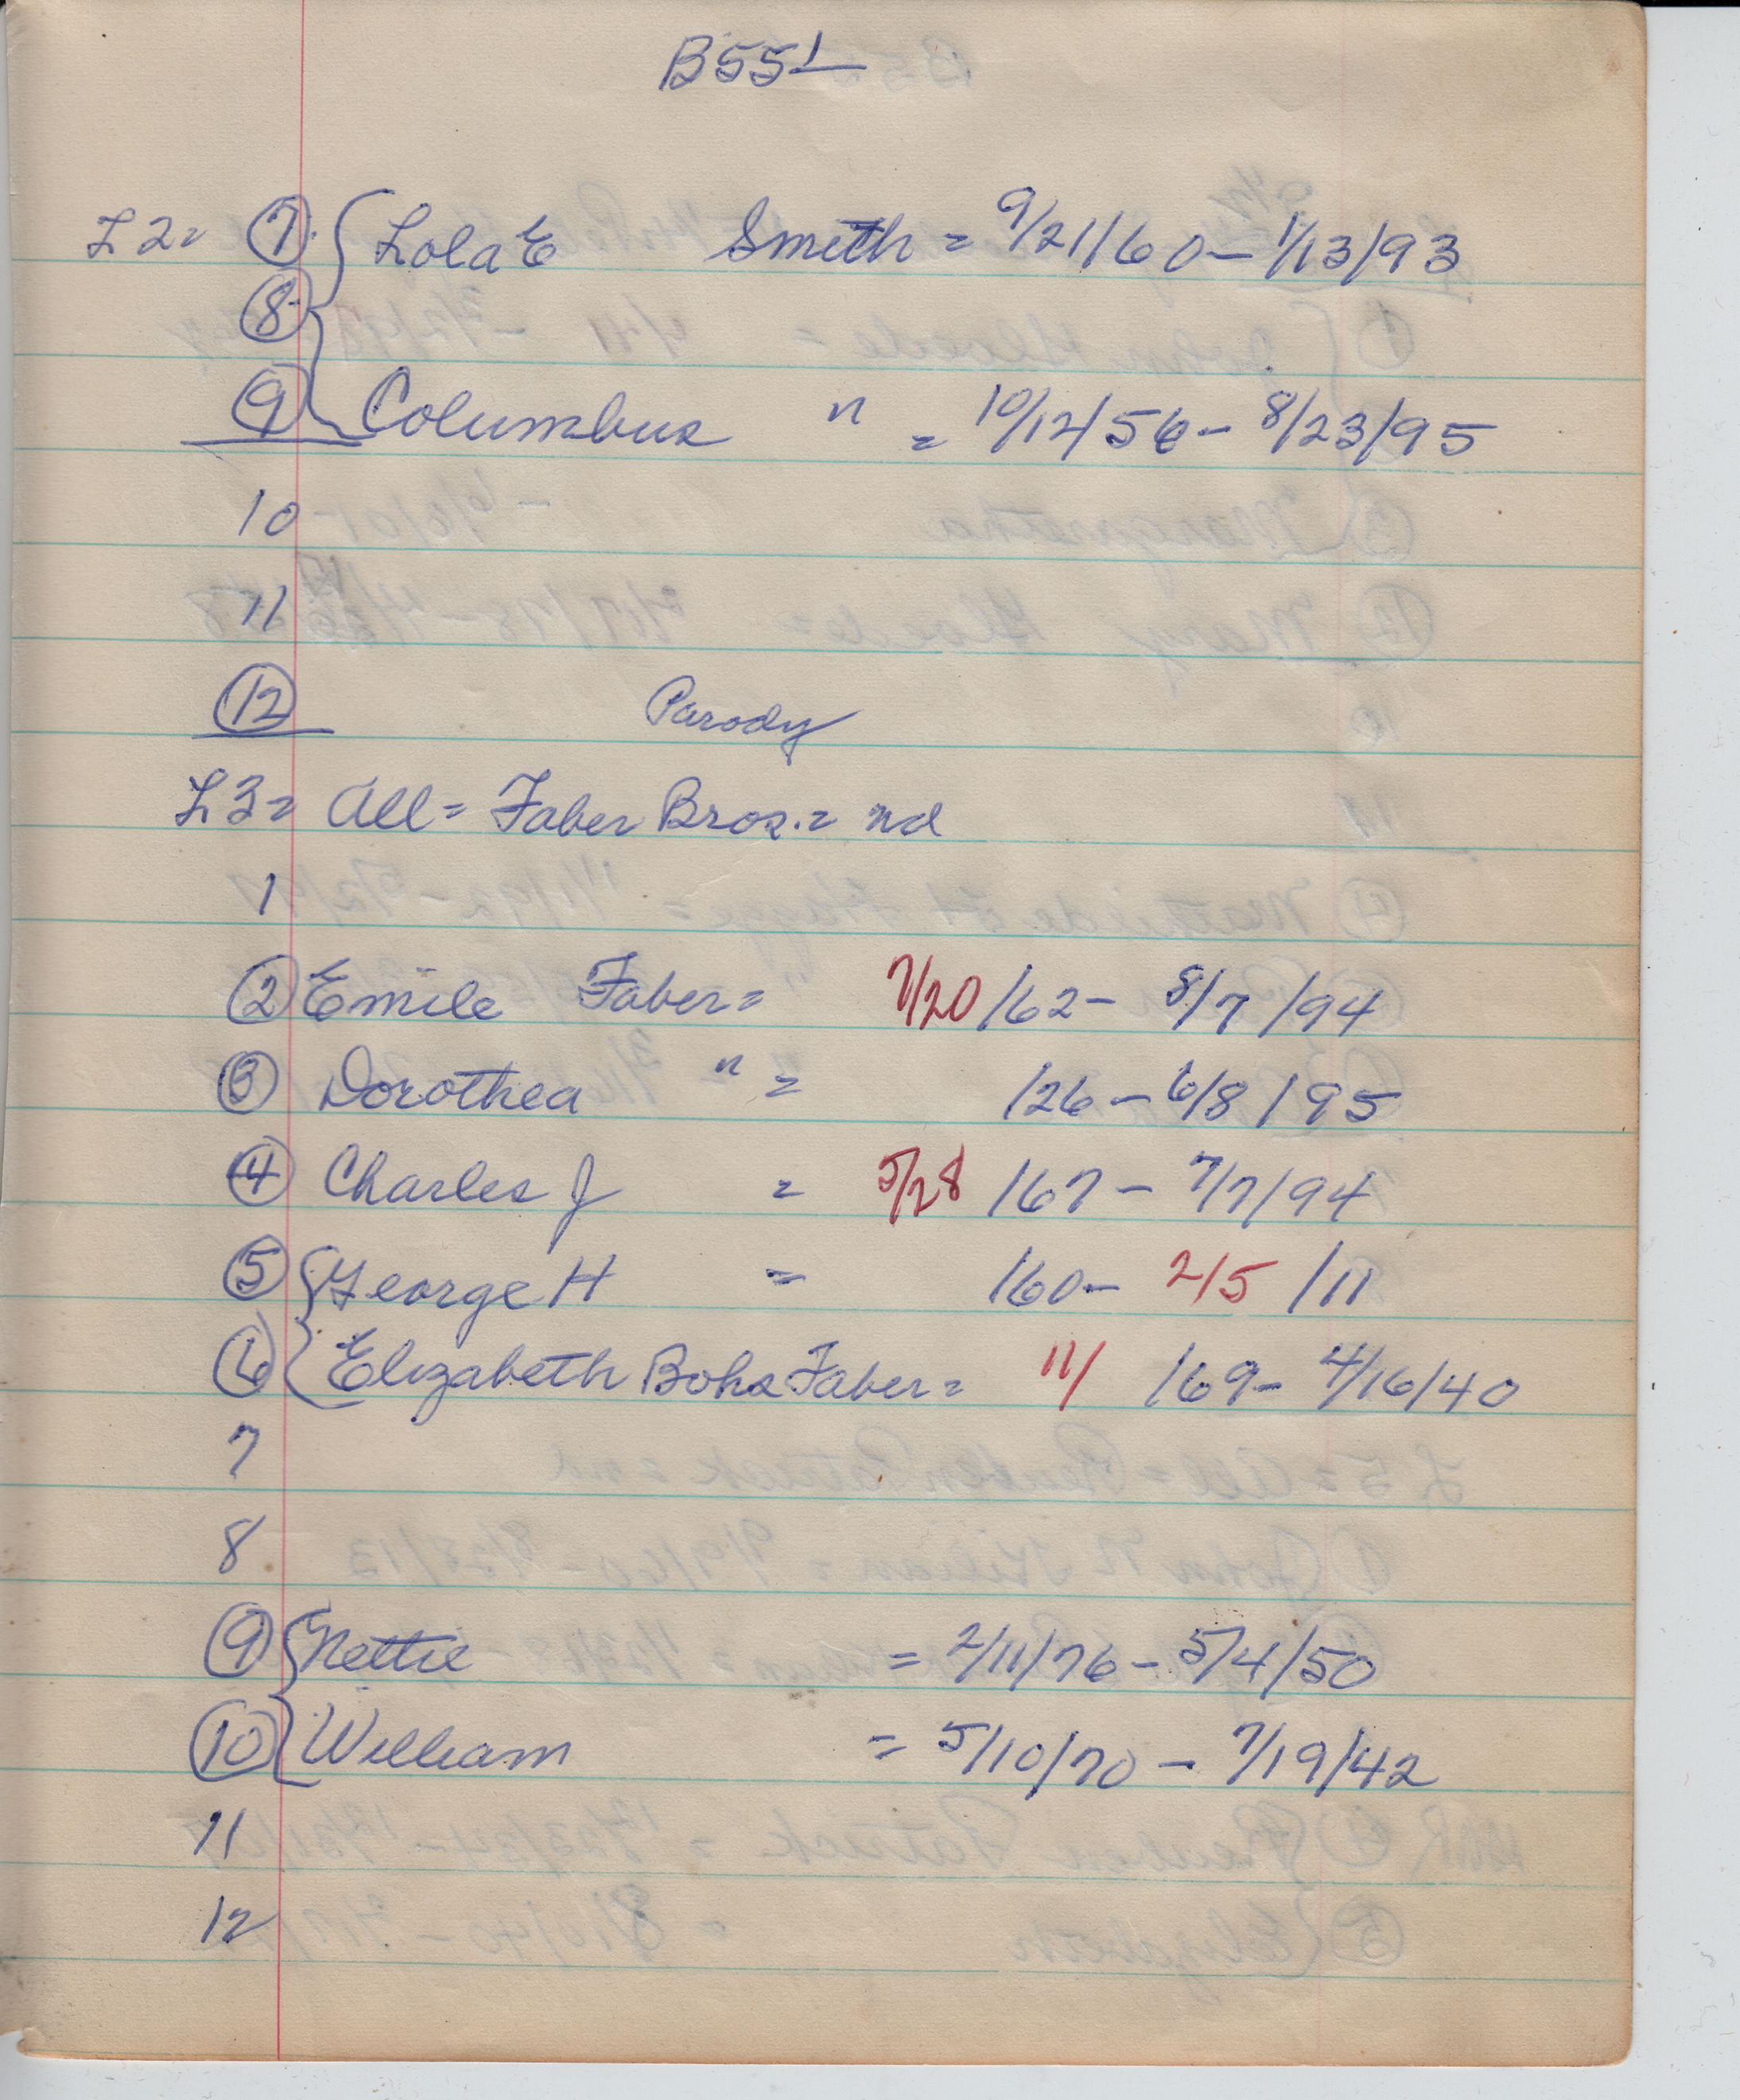 B551
L2= 7 Lola E Smith = 9/21/60 - 1/13/93
8
9 Columbus " = 10/12/56 - 8/23/95
10
11
12 Parody
L3= All = Faber Bros. = nd
1
2 Emile Faber = 7/20/62 - 8/7/94
3 Dorothea " = /26 - 6/8/95
4 Charles J = 5/28/67 - 7/7/94
5 George H = /60 - 2/5/11
6 Elizabeth Bohs Faber = 11/ /69 - 4/16/40
7
8
9 Nettie = 2/11/76 - 5/4/50
10 William = 5/10/70 - 7/19/42
11
12